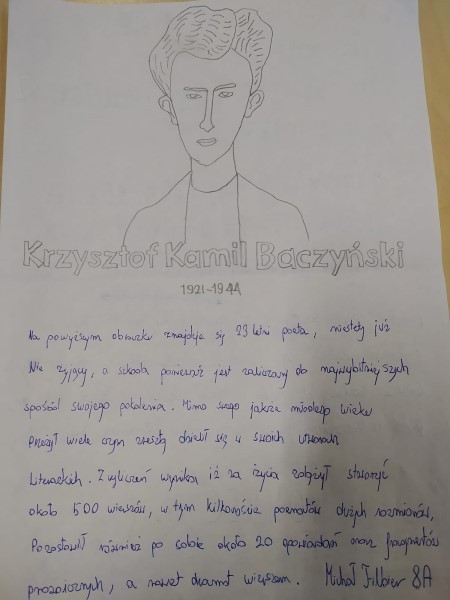 Krzysztof Kamil Baczyński
1921-1944
Na powyższym obrazku znajduje się 23 letni poeta, niestety już
Nie żyjący, a szkoda ponieważ jest zaliczany do najwybitniejszych
spośród swojego pokolenia. Mimo swego jakże młodego wieku
Przeżył wiele czym zresztą dzielił się w swoich utworach
Literackich. Z wyliczeń wynika iż za życia zdążył stworzyć
około 500 wierszów, w tym kilkanaście poematów dużych rozmiarów,
Pozostawił również po sobie około 20 opowiadań oraz fragmentów
prozaicznych, a nawet dramat wierszem. Michał 8A